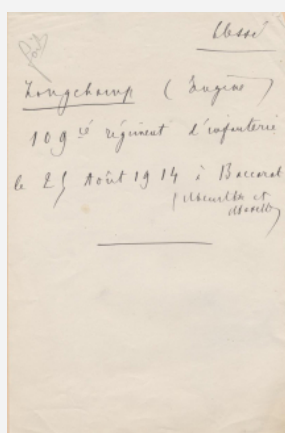 blessé
Longchamp (Eugène)
109ie régiment d'infanterie
le 25 Août 1914 à Baccarat
(Meurthe et
Moselle)